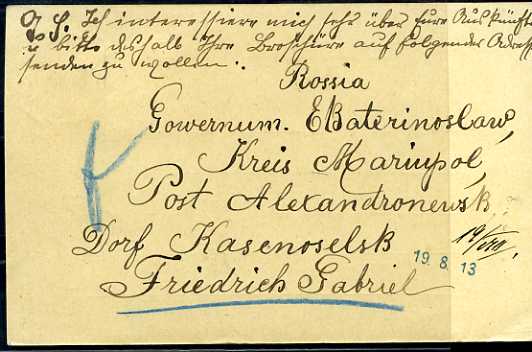 P. S. Ich interessiere mich sehr über Eure Auskünfte
u bitte deshalb Ihre Broschüre auf folgender Adresse
senden zu wollen.
Rossia
Gowernum. Ekaterinoslaw,
Kreis Mariupol,
Post Alexandronewsk
Dorf Kasenoselsk
19. 8. 13
Friedrich Gabriel